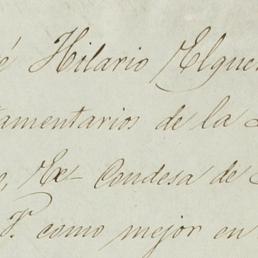 é Hilario Elgue
tamentarios de la
, Ex- Condesa de
P. como mejor en